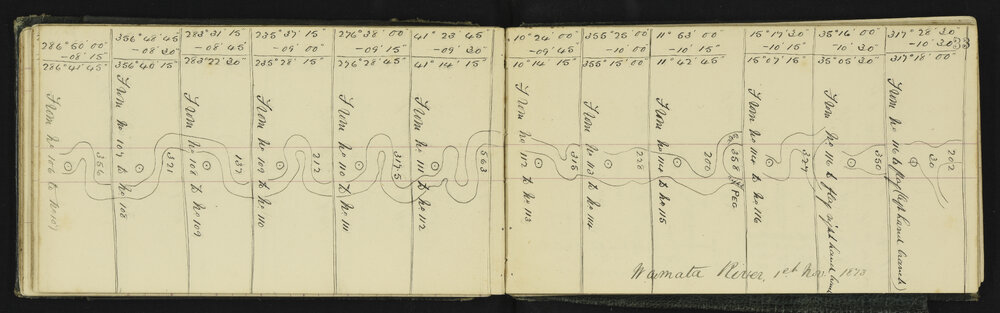 33
286° 50' 00"
- 08' 15"
286° 41' 45"
From No 106 to No 107
356
356° 48' 45"
- 08' 30"
356° 40' 15"
From No 107 to No 108
321
283° 31' 15"
- 08' 45"
283° 22' 30"
From No 108 to No 109
137
235° 37' 15"
- 09' 00"
235° 28' 15"
From No 109 to No 110
212
276° 38' 00"
- 09' 15"
276° 28' 45"
From No 110 to No 111
41° 23' 45"
- 09' 30"
41° 14' 15"
From No 111 to No 112
563
10° 24' 00"
- 09' 45"
10° 14' 15"
From No 112 to No 113
315
355° 25' 00"
- 10' 00"
355° 15' 00"
From No 113 to No 114
228
11° 53' 00"
- 10' 15"
11° 42' 45"
From No 114 to No 115
200
358
PEG
15° 17' 30"
- 10' 15"
15° 07' 15"
to No 116
327
35° 16' 00"
- 10' 30"
35° 05' 30"
From No 116 to flag right hand
350
317° 28' 30"
- 10' 30"
317° 18' 00"
From No 116 to flag (left hand branch)
30
202
River, 1st Nov 1873